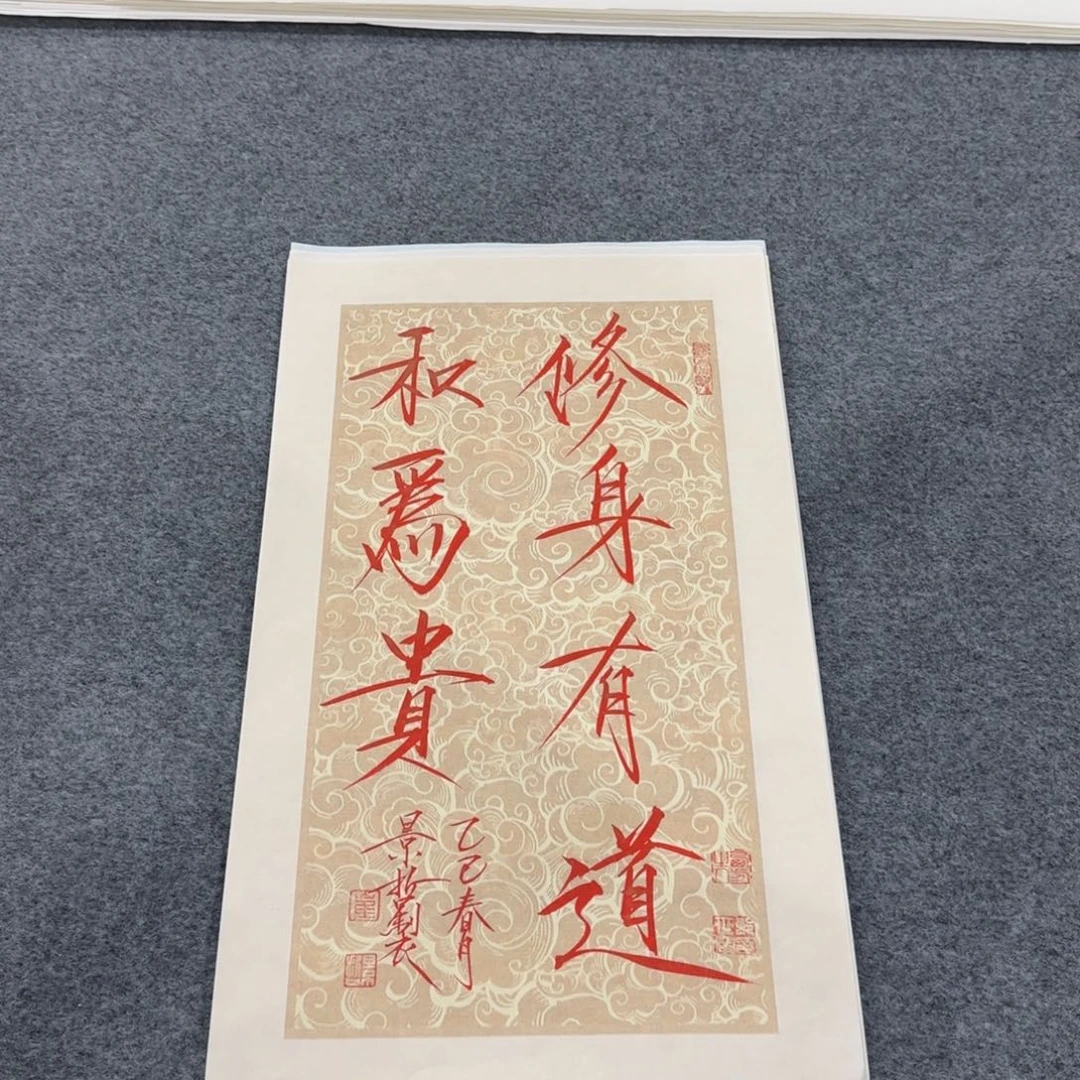 修身有道
和為貴
乙巳春月
景
製